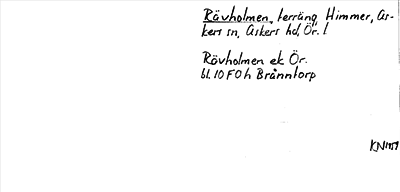 Rävholmen, terräng Himmer, As-
kers sn, Askers hd, Ör. l
Rävholmen ek Ör.
bl. 10 F 0 h Bränntorp